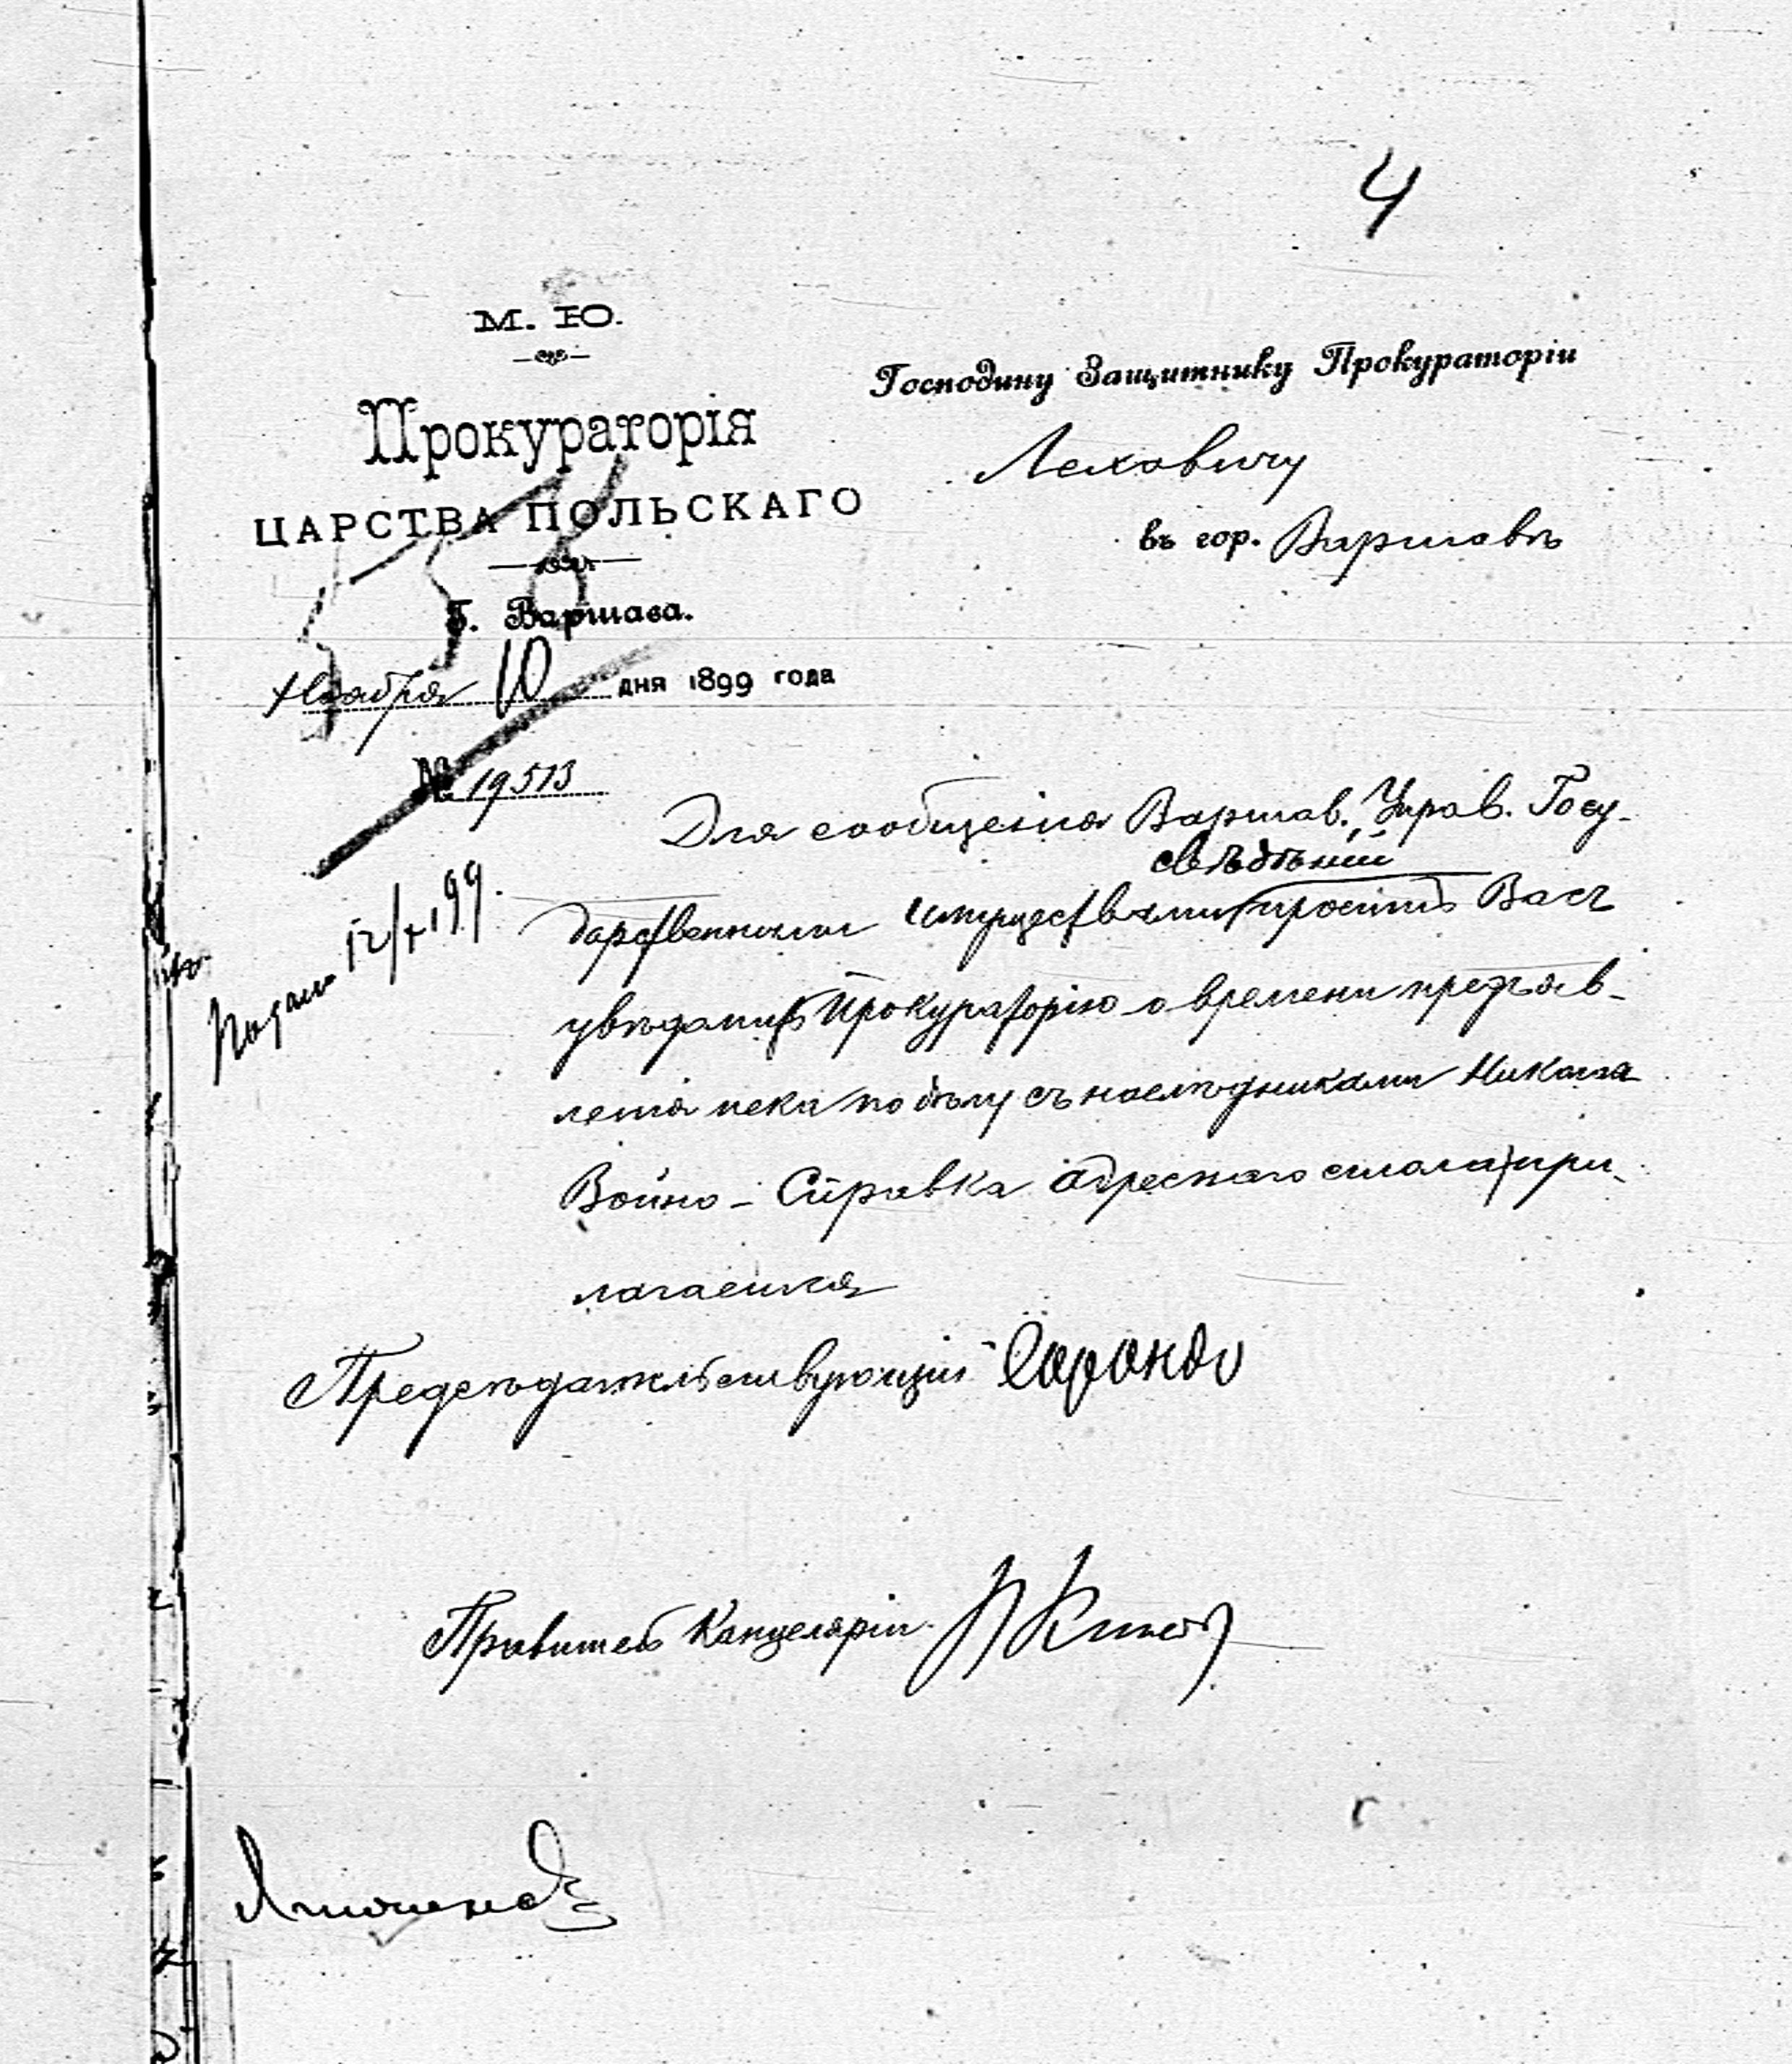 4
М. Ю.
Прокураторія
ЦАРСТВА ПОЛЬСКАГО
Г. Варшава.
Ноября 10 дня 1899 года
№ 19513
Господину Защитнику Прокураторіи
Леховичу
въ гор. Варшавѣ
Для сообщенія Варшав. Управ. Госу-
свѣдѣній
дарственными имуществами просить Васъ
увѣдомить Прокураторію о времени предъяв-
ленія иска по дѣлу съ наслѣдниками Николая
Войно - Справка адреснаго стола при-
лагается
12/X 99.
Предсѣдательствующій
Правитель Канцеляріи